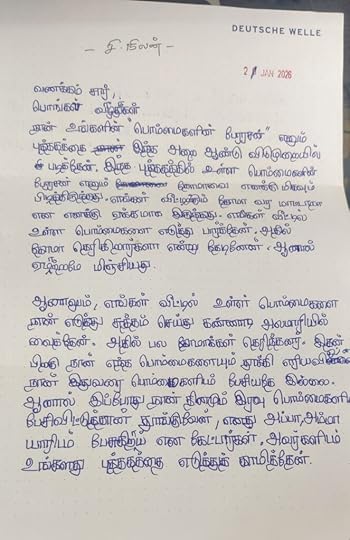 DEUTSCHE WELLE
- சி. நிலன் -
21 JAN 2026
வணக்கம் சார்,
பொங்கல் வாழ்த்துகள்
நான் உங்களின் "பொம்மைகளின் பேரரசன்" எனும்
புத்தகத்தை இந்த அரை ஆண்டு விடுமுறையில்
படித்தேன். இந்த புத்தகத்தில் உள்ள பொம்மைகளின்
பேரரசன் எனும் கோமாவை எனக்கு மிகவும்
பிடித்திருந்தது. எங்கள் வீட்டிற்கும் கோமா வர மாட்டானா
என எனக்கு ஏக்கமாக இருந்தது. எங்கள் வீட்டில்
உள்ள பொம்மைகளை எடுத்து பார்த்தேன். அதில்
கோமா தெரிகிறார்களா என்று தேடினேன். ஆனால்
ஏமாற்றமே மிஞ்சியது.
ஆனாலும், எங்கள் வீட்டில் உள்ள பொம்மைகளை
நான் எடுத்து சுத்தம் செய்து கண்ணாடி அலமாரியில்
வைத்தேன். அதில் பல கோமாக்கள் தெரிந்தனர். இதன்
பிறகு நான் எந்த பொம்மைகளையும் தூக்கி எறியவில்லை
நான் இதுவரை பொம்மைகளிடம் பேசியதே இல்லை.
ஆனால் இப்போது நான் தினமும் இரவு பொம்மைகளிடம்
பேசிவிட்டுத்தான் தூங்குவேன், எனது அப்பா, அம்மா
யாரிடம் பேசுகிறாய் என கேட்டார்கள், அவர்களிடம்
உங்களது புத்தகத்தை எடுத்துக் காமித்தேன்.